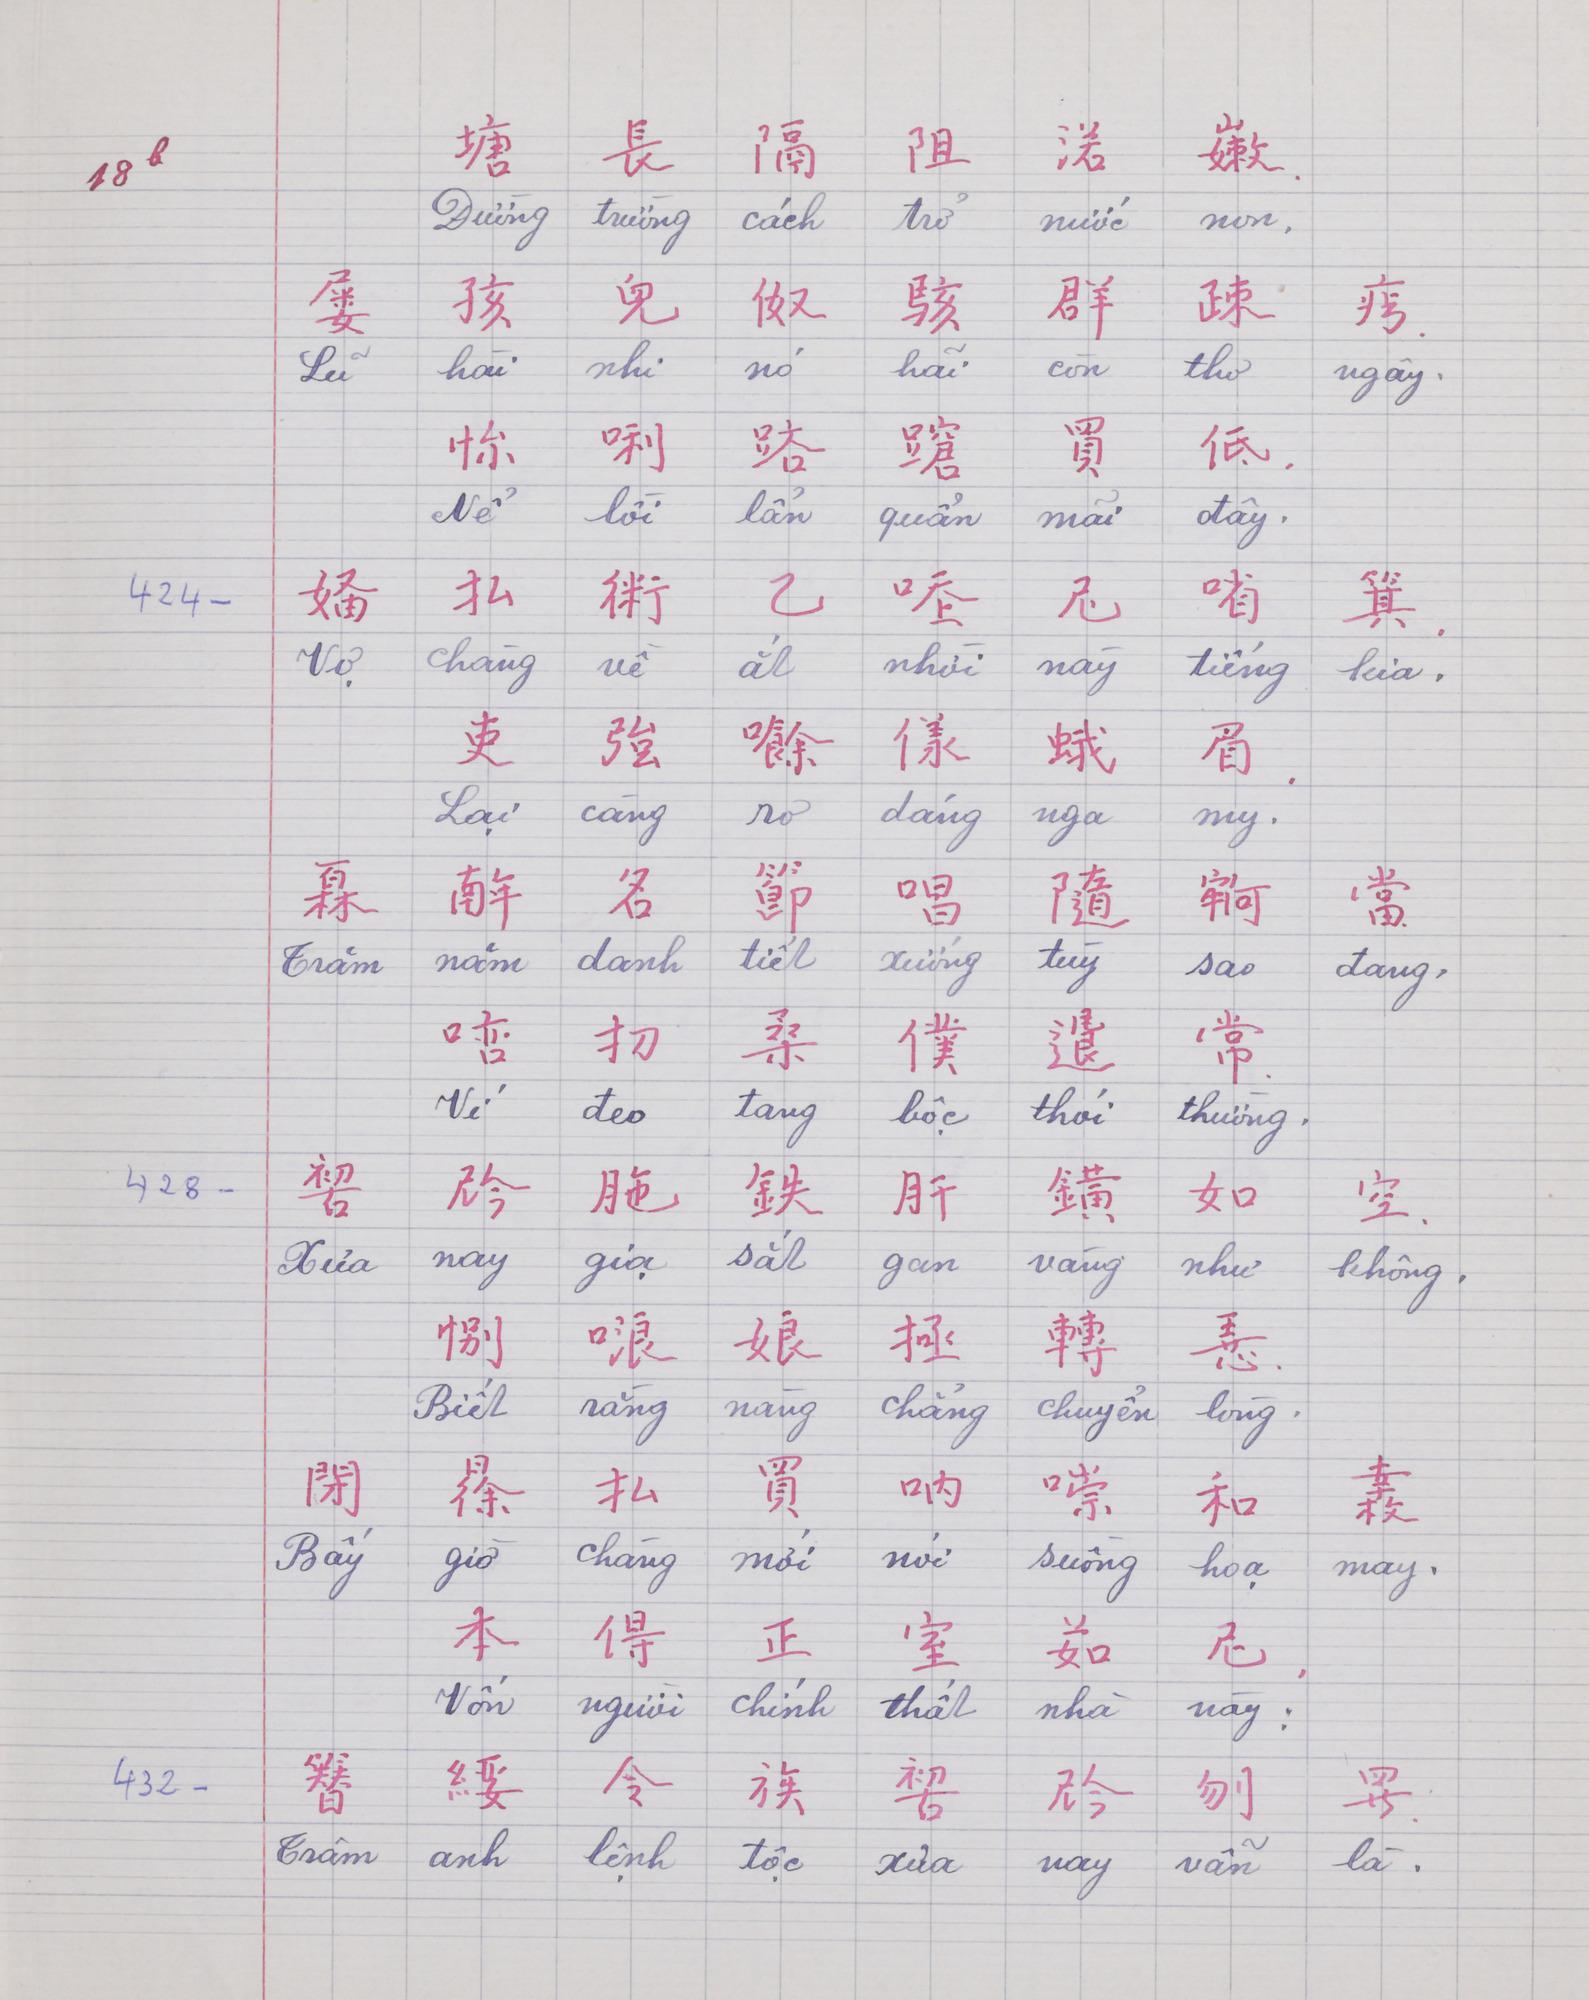 18b
塘 長 隔 阻 渃 𡽫.
Đường trường cách trở nước non.
屢 孩 兒 伮 駭 群 疎 㾾.
Lũ hài nhi nó hãi còn thơ ngây.
㤅 唎 𨀈 買 低.
Nể lời lẩn quẩn mãi đây.
424-
払 術 乙 𠰃 尼 哨 箕.
Vợ chàng về ắt nhời này tiếng kia.
吏 強 㗂 樣 蛾 眉.
Lại càng rỡ dáng nga my.
𤾓 𢆥 名 節 唱 隨 𡫡 當.
Trăm năm danh tiết xướng tuỳ sao đang.
㘉 扨 桑 僕 退 常.
Ví đeo tang bộc thói thường.
428-
𠸗 𫢩 胣 鉄 肝 鐄 如 空.
Xưa nay giạ sắt gan vàng như không.
𢢂 哴 娘 拯 轉 𢚸.
Biết rằng nàng chẳng chuyển lòng.
閉 𣇞 払 買 吶 㗰 和 𢆧
Bấy giờ chàng mới nói suồng hoạ may.
本 得 正 室 茹 尼,
Vốn người chính thất nhà này;
432-
簪 綏 令 族 𠸗 𫢩 刎 𱺵.
Trâm anh lệnh tộc xưa nay vẫn là.